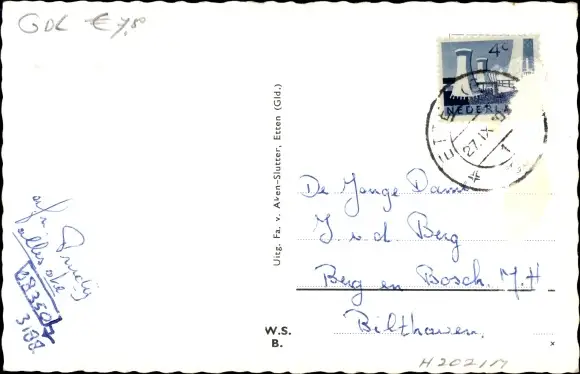 GDL € 7,50
4c
NEDERLA
ETTE
27.IX
1
Uitg. Fa. v. Aken-Slutter, Etten (Gld.)
De Jonge Dame
J v d Berg
Berg en Bosch. M.H
Bilthoven.
afz.
alles oke
W.S.
B.
x
H202117